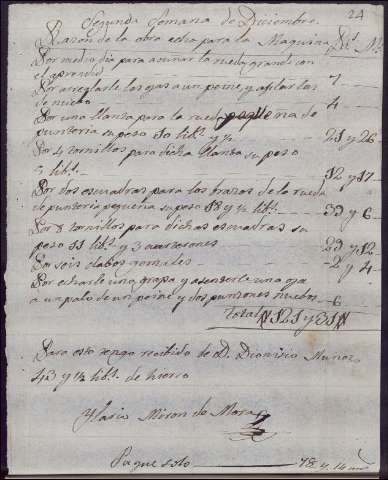 24
Segunda Semana de Diciembre.
Razon de la obra echa para la Maquina Rs. Ms.
Por medio dia para acuñar la rueda grande con
el aprendiz 7
Por arreglarle los ojas a un peine y afilarlas
de nuebo 4
Por una llanta para la rueda pequeña de
punteria su peso 10 libs. y ½ 21 y 26
Por 4 tornillos para dicha llanta su peso
5 libs. 12 y 17
Por dos escuadras para los brazos de la rueda
de punteria pequeña su peso 18 y ½ libs. 39 y 6
Por 8 tornillos para dichas escuadras su
peso 11 libs. y 3 29 y 12
Por seis clabos 2 y 4
Por echarle una grapa y asenderle una oja
a un palo de un peine y dos punzones nuebos 6
Total 121 y 31
Para esto tengo recibido de D. Dionisio Muñoz
43 y ½ libs. de hierro
Ylario Miron de Mora
Pague solo 78 y 14